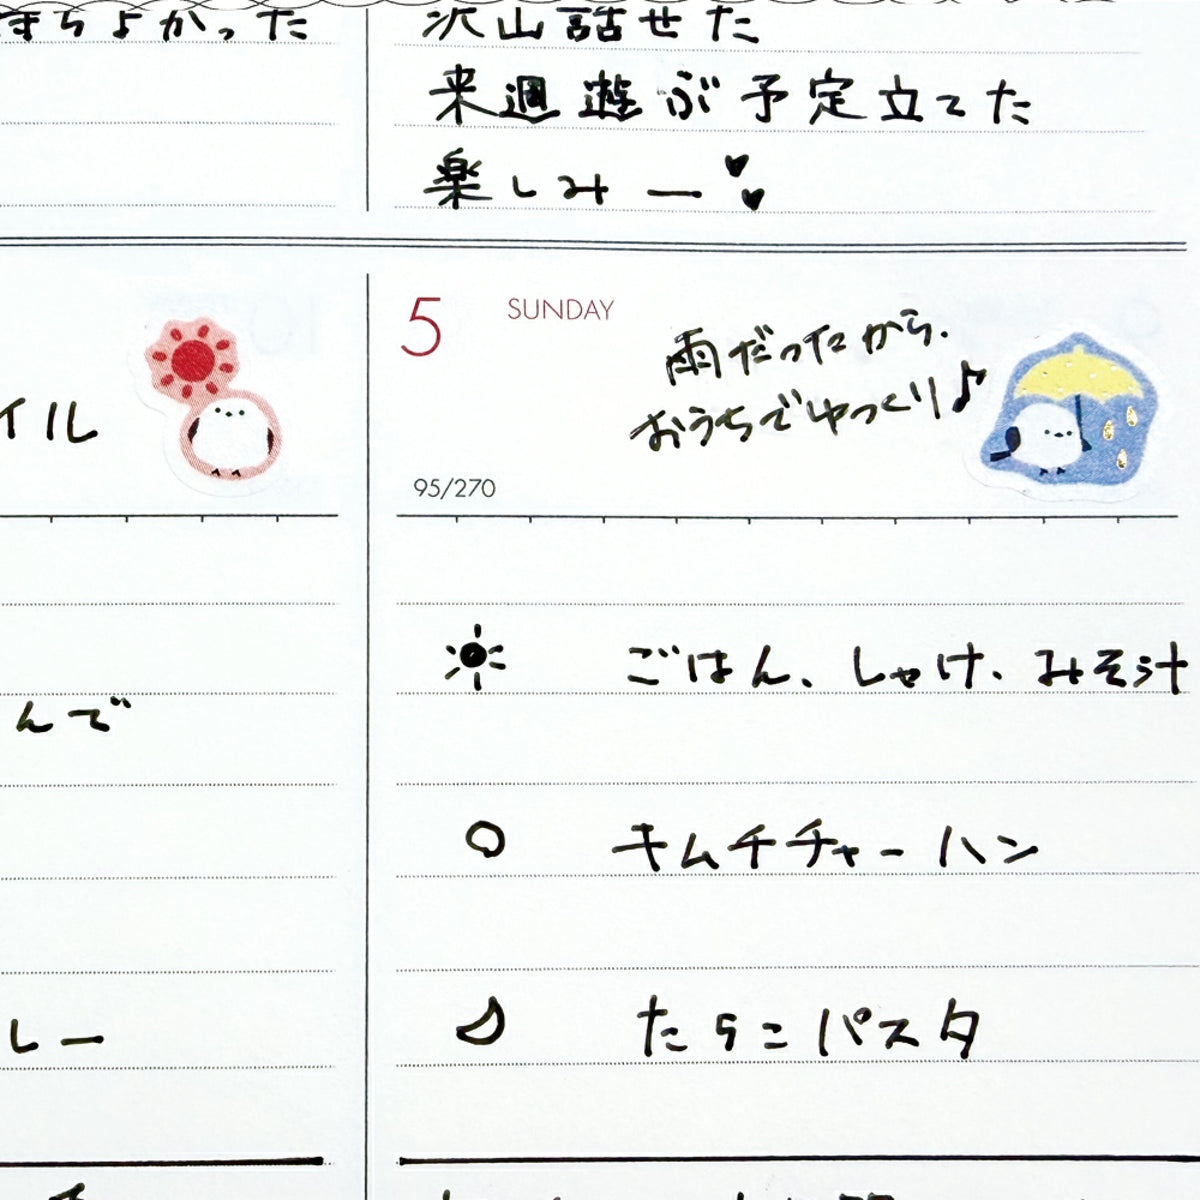 まちよかった
沢山話せた
来週遊ぶ予定立てた
楽しみー
イル
んで
レー
5 SUNDAY
雨だったから、
おうちでゆっくり♪
95/270
ごはん、しゃけ、みそ汁
キムチチャーハン
たらこパスタ